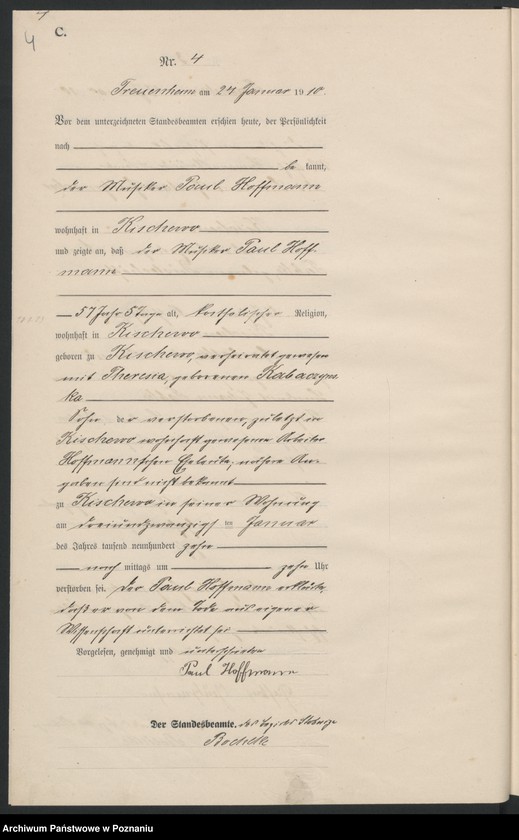 4
C.
Nr. 4
Treuenheim am 24 Januar 1910.
Vor dem unterzeichneten Standesbeamten erschien heute, der Persönlichkeit
nach
be kannt,
der Musiker Paul Hoffmann
wohnhaft in Kischewo
und zeigte an, daß der Musiker Paul Hoff
mann
57 Jahr 5 Tage alt, katholischer Religion,
wohnhaft in Kischewo
geboren zu Kischewo, verheiratet gewesen
mit Theresia, geborenen Kabaczyns
ka
Sohn der verstorbenen, zuletzt in
Kischewo wohnhaft gewesenen Arbeiter
Hoffmannschen Eheleute, nähere An-
gaben sind nicht bekannt
zu Kischewo in seiner Wohnung
am dreiundzwanzigsten Januar
des Jahres tausend neunhundert zehn
nach mittags um zehn Uhr
verstorben sei. Der Paul Hoffmann erklärte,
daß er von dem Tode aus eigener
Wissenschaft unterrichtet sei
Vorgelesen, genehmigt und unterschrieben
Paul Hoffmann
Der Standesbeamte. des Bezirks
Archiwum Państwowe w Poznaniu